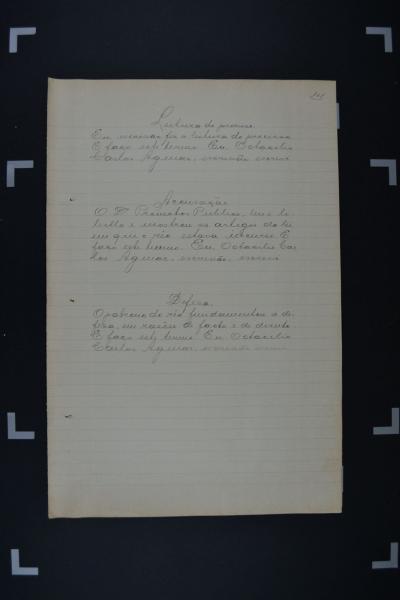 Leitura do processo
Eu escrivão fiz a leitura do processo
E faço este termo Eu, Octacilio
Carlos Aguiar, escrivão, escrevi
Accusação
O Dr Promotor Publico, leu o li-
bello e mostrou os artigos da lei
em que o réo estava incurso. E
faço este termo. Eu, Octacilio Car
los Aguiar, escrivão, escrevi
Defesa
O patrono do réo fundamentou a de-
fesa, em razões de facto e de direito.
E faço este termo Eu, Octacilio
Carlos Aguiar, escrivão escrevi